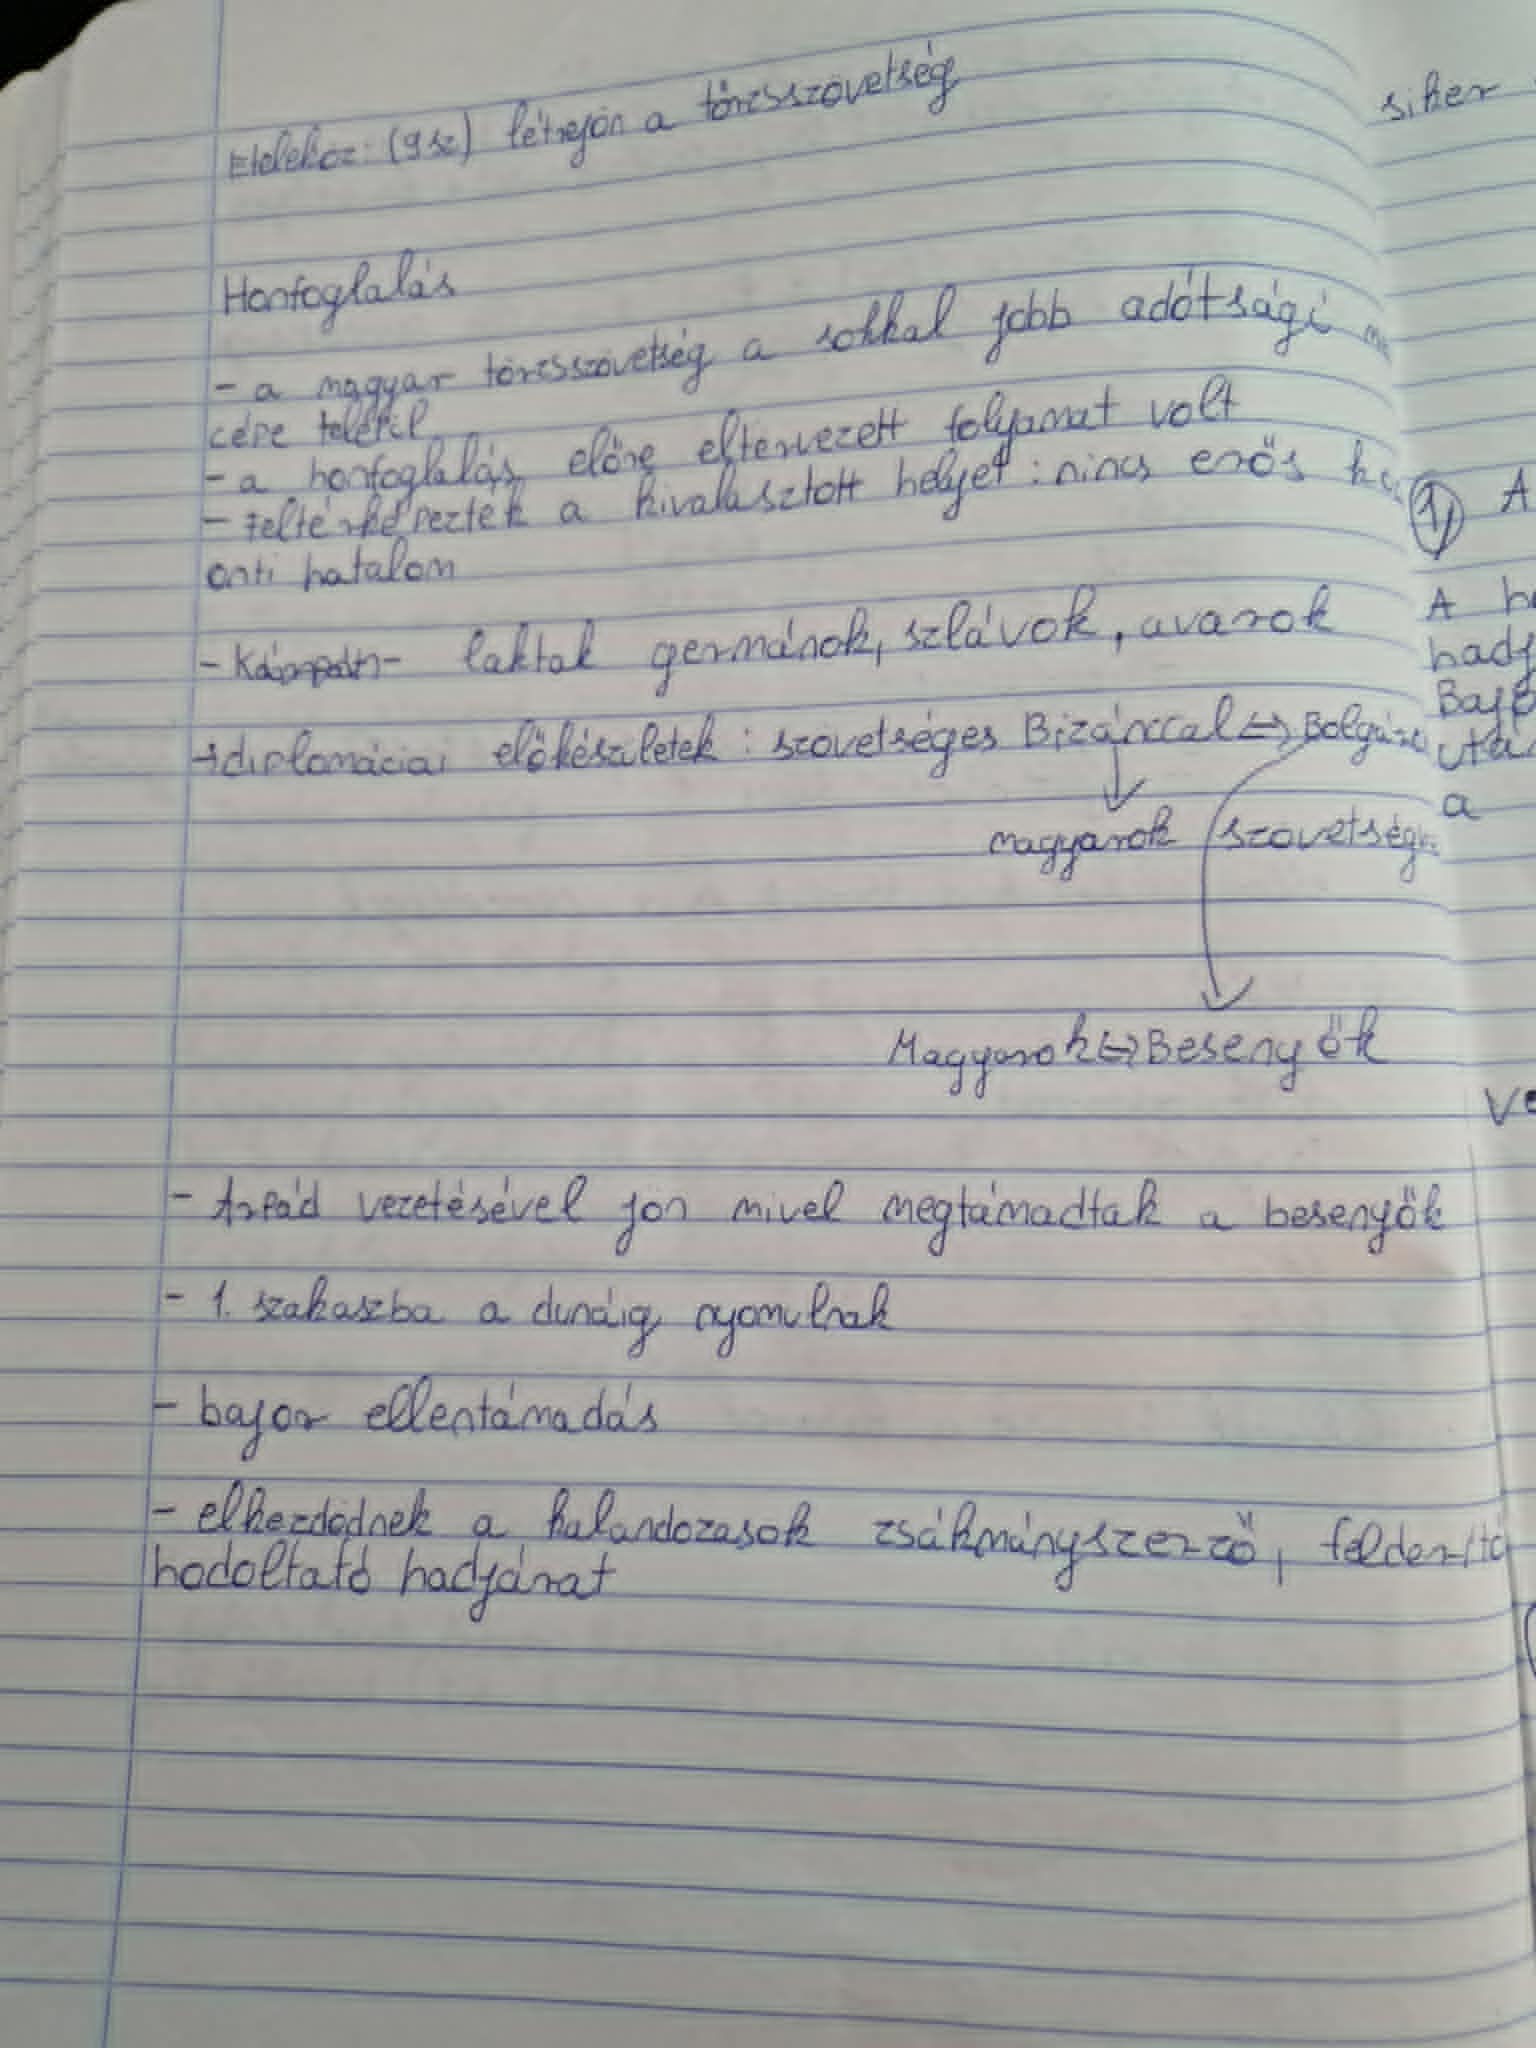 Etelköz: (9sz) létrejön a törzsszövetség
Honfoglalás
- a magyar törzsszövetség a sokkal jobb adótsági me
cére települ
- a honfoglalás előre eltervezett folyamat volt
- feltérképezték a kiválasztott helyet : nincs erős kö
onti hatalom
- laktak germánok, szlávok, avarok
→ diplomáciai előkészületek : szövetséges Bizánccal ⇔ Bolgárok
magyarok szövetség
Magyarok ⇔ Besenyők
- Árpád vezetésével jön mivel megtámadták a besenyők
- 1. szakaszba a dunáig nyomulnak
- bajor ellentámadás
- elkezdődnek a kalandozások zsákmányszerző, felderítő
hódoltató hadjárat
siker
1, A
A h
hadj
Baj
utá
a